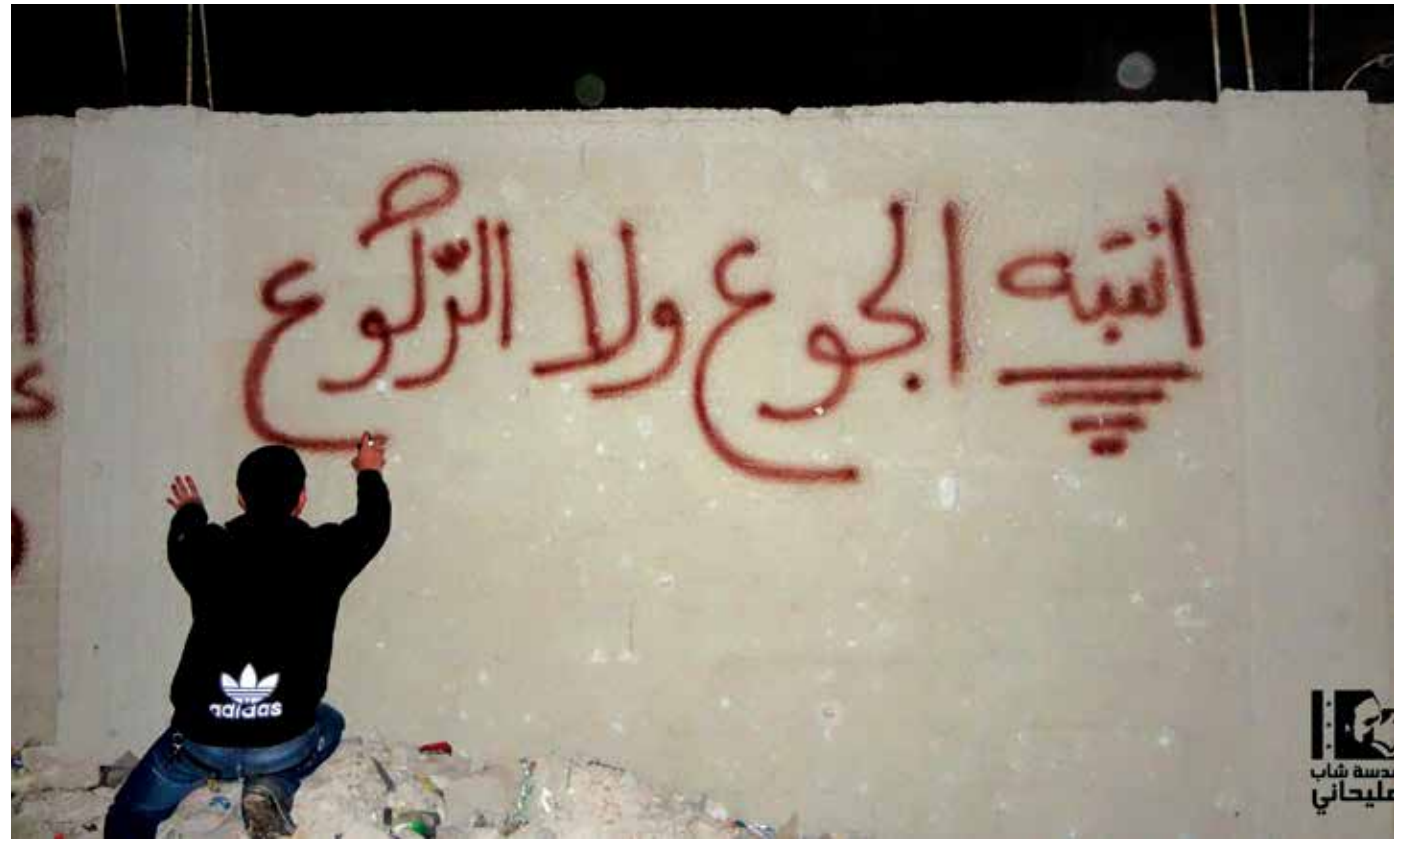 انتبه الجوع ولا الرّكوع
adidas
دسة شاب
مليحاني